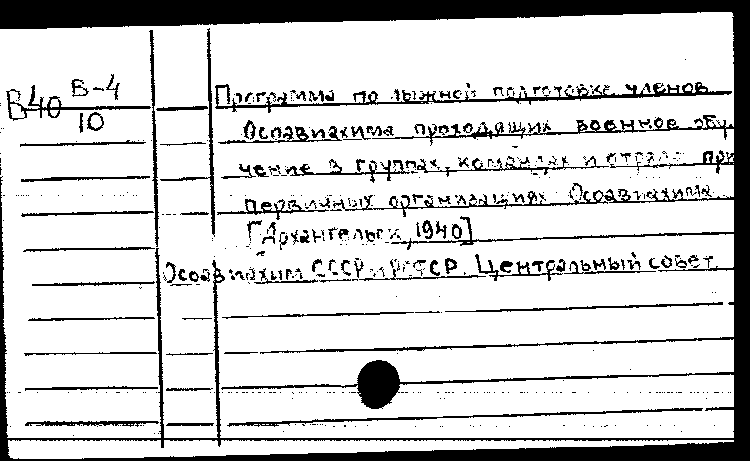 В40 В-4/10
Программа по лыжной подготовке членов
Осоавиахима проходящих военное обу-
чение в группах, командах и отрядах при
первичных организациях Осоавиахима
[Архангельск, 1940]
Осоавиахим СССР и РСФСР. Центральный совет.